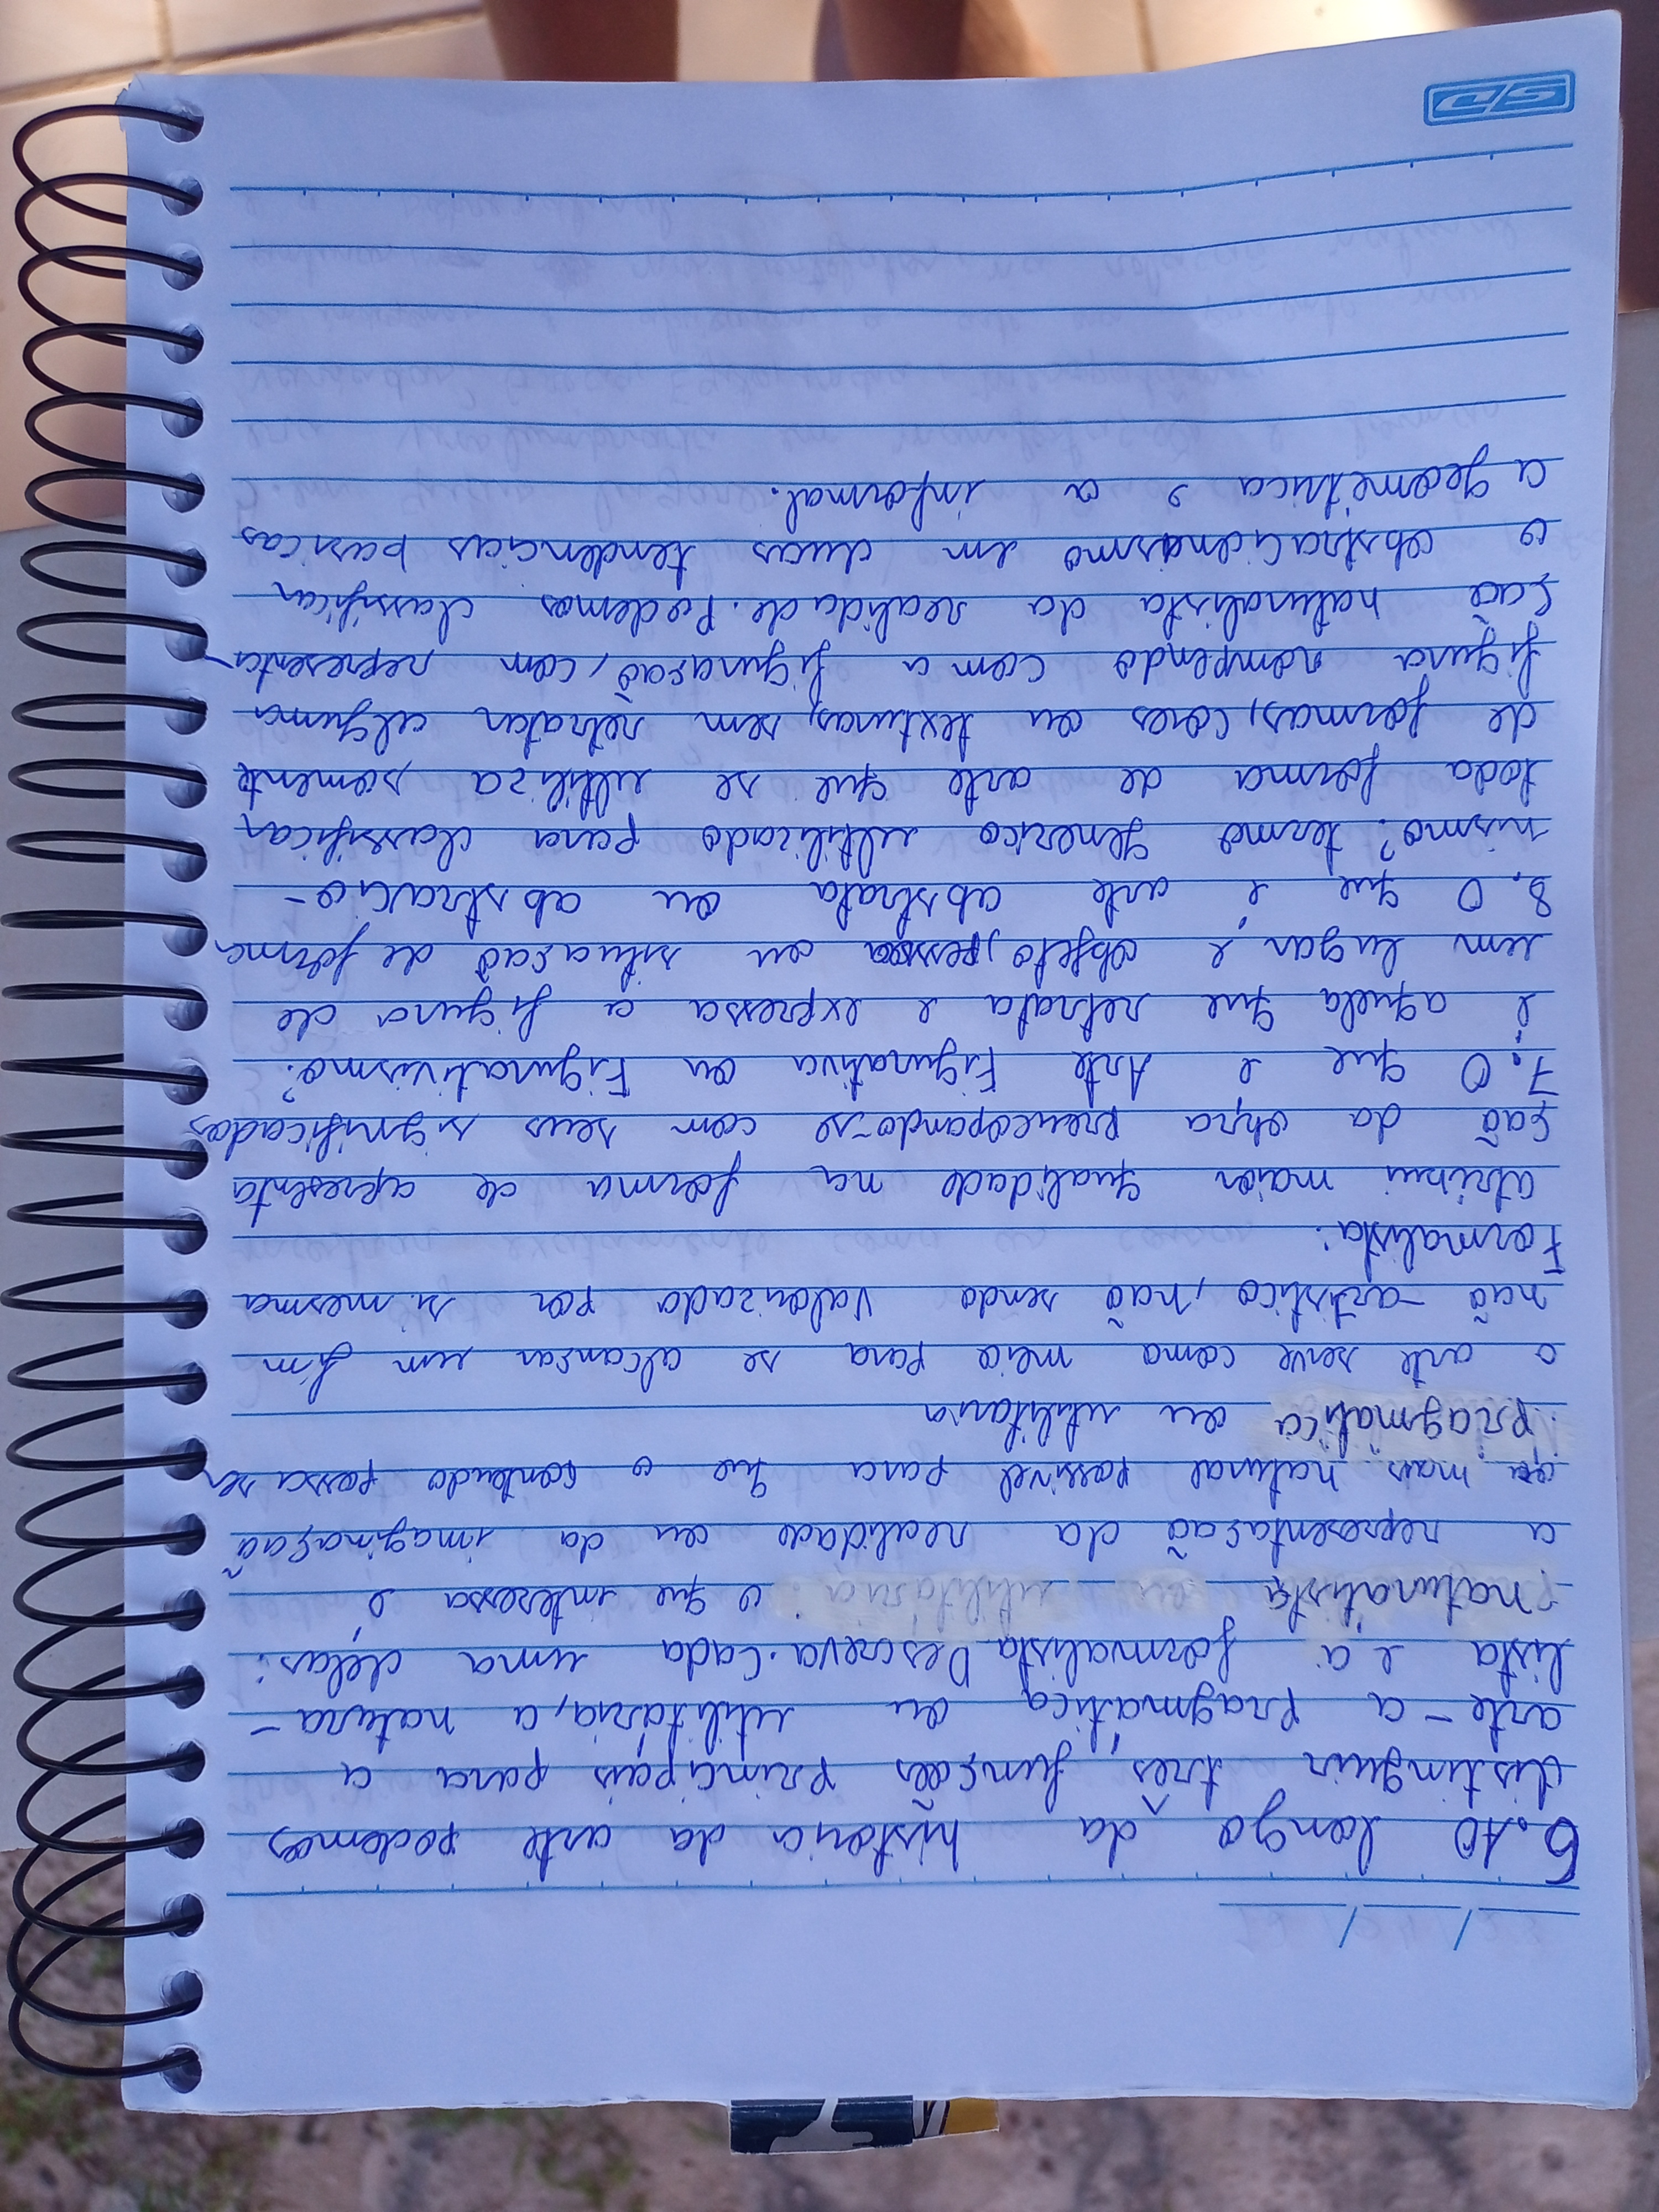 6. Ao longo da história da arte podemos
distinguir três funções principais para a
arte - a pragmática ou utilitária, a natura-
lista e a formalista Descreva cada uma delas:
naturalista o que interessa é
a representação da realidade ou da imaginação
mais natural possivel para que o conteudo possa ser
pragmatica ou utilitaria
a arte serve como meio para se alcansar um fim
não-artistico, não sendo valorizada por si mesma
Formalista:
atribui maior qualidade na forma de apresenta
ção da obra preucopando-se com seus significados
7. O que é Arte Figurativa ou Figurativismo?
é aquela que retrata e expressa a figura de
um lugar é objeto, pessoa ou situação de forma
8. O que é arte abstrata ou abstracio-
nismo? termo generico ultilizado para classificar
toda forma de arte que se ultiliza somente
de formas, cores ou texturas, sem retratar alguma
figura rompendo com a figuração, com representa-
ção naturalista da realidade. Podemos classificar
o abstracionismo em duas tendencias basicas
a geométrica e a informal.